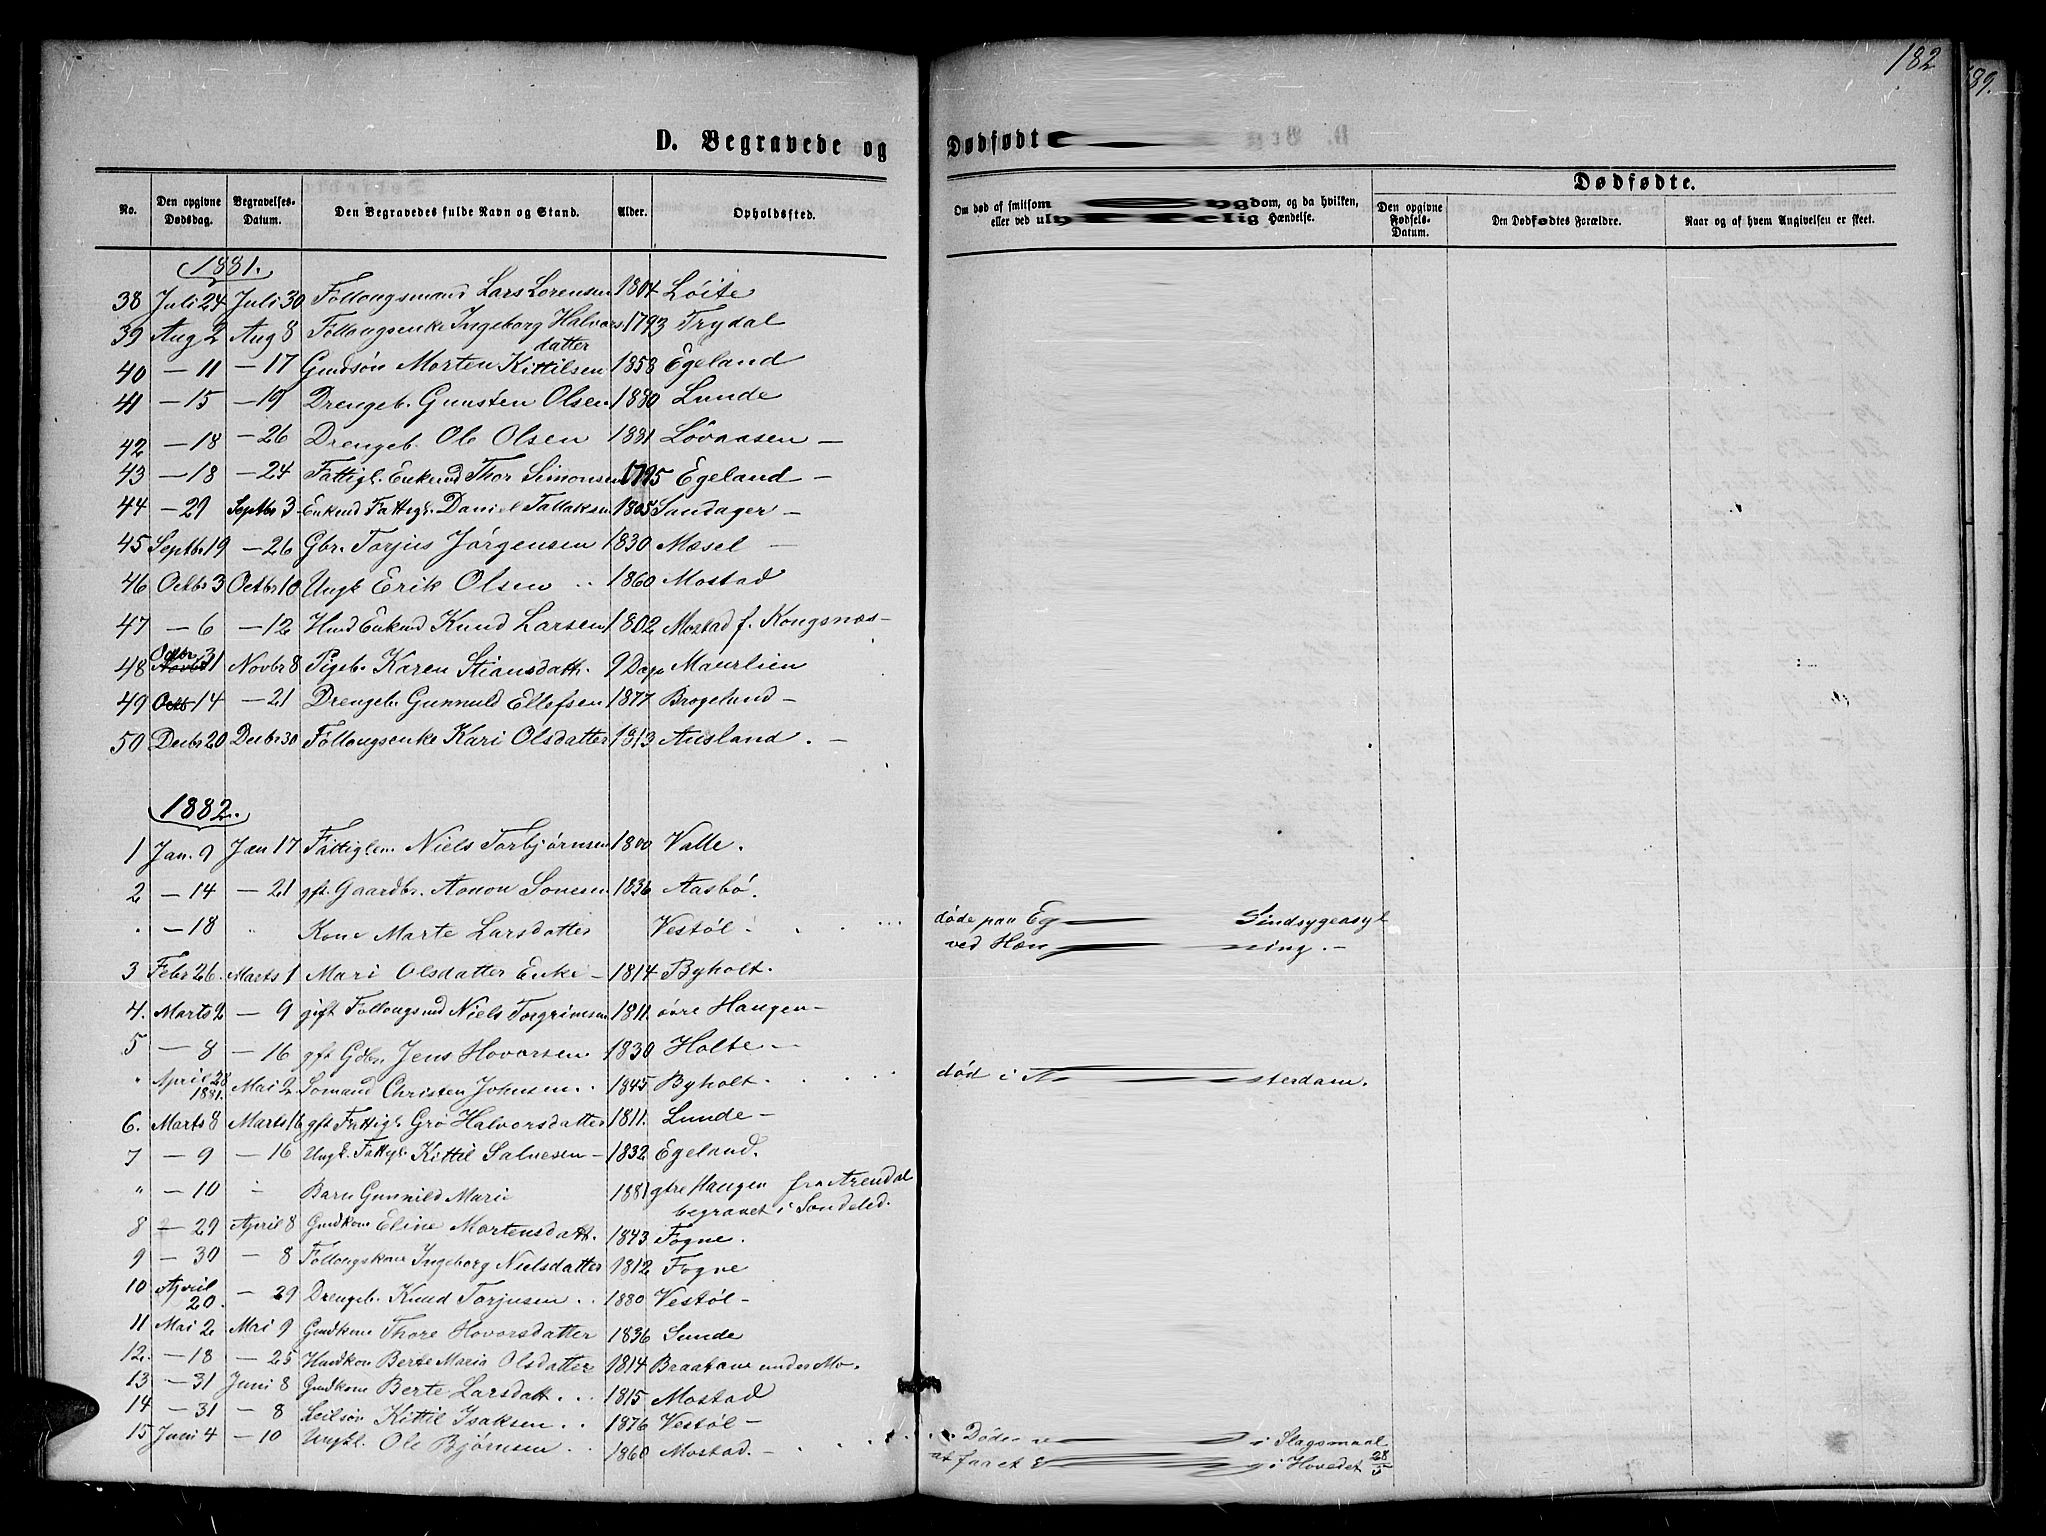 182
89.
D. Begravede og Dødfødt
No.
Den opgivne Dødsdag.
Begravelses-Datum.
Den Begravedes fulde Navn og Stand.
Alder.
Opholdssted.
Om død af smitsom ygdom, og da hvilken,
eller ved ul elig Hændelse.
Dødfødte.
Den opgivne Fødsels-Datum.
Den Dødfødtes Forældre.
Naar og af hvem Angivelsen er skeet.
1881.
38 Juli 24 Juli 30 Föllougsmand Lars Lorensen 1804 Löite
39 Aug 2 Aug 8 Föllougsenke Ingeborg Halvors 1793 Trydal
datter
40 — 11 — 17 Gmdsøn Morten Kittilsen 1858 Egeland
41 — 15 — 19 Drengeb. Gunsten Olsen 1880 Lunde
42 — 18 — 26 Drengeb. Ole Olsen 1881 Løvaasen —
43 — 18 — 24 Fattigl. Enkmd Thor Simonsen 1795 Egeland —
44 — 29 Septbr 3 Enkmd Fattigl. Daniel Tallaksen 1805 Sandager —
45 Septbr 19 — 26 Gbr. Torjus Jørgensen 1830 Mæsel —
46 Octbr 3 Octbr 10 Ungk Erik Olsen 1860 Mostad
47 — 6 — 12 Hmd Enkmd Knud Larsen 1802 Mostad f. Kongsnæs —
48 Octbr 31 Novbr 8 Pigeb. Karen Stiansdatt. 9 Dage Maurlien
49 14 — 21 Drengeb. Gunnuld Ellefsen 1877 Brogeland —
50 Decbr 20 Decbr 30 Föllougsenke Kari Olsdatter 1813 Ausland. —
1882.
1 Jan. 9 Jan 17 Fattiglem Niels Torbjørnsen 1800 Valle.
2 — 14 — 21 gft. Gaardbr. Aanon Sonesen 1836 Aasbö.
" — 18 " Kone Marte Larsdatter Vestöl döde paa Eg Sindsygeasyl
ved Hæn ning. —
3 Febr 26. Marts 1 Mari Olsdatter Enke — 1814 Byholt.
4. Marts 2 — 9 gift Föllougsmd Niels Torgrimsen 1811. övre Haugen —
5 — 8 — 16 gft Gdbr. Jens Hovorsen. 1830 Holte —
" April 28 1881. Mai 2 Sömand Christen Johnsen. 1845 Byholt. död i A sterdam.
6. Marts 8 Marts 16 gft Fattigl. Grö Halvorsdatter 1811. Lunde —
7 — 9 — 16 Ungk. Fattigl. Kittil Salvesen — 1832 Egeland.
" — 10 " Barn Gunnild Marie 1881 Haugen fra Arendal
begravet i Söndeled.
8 — 29 April 8 Gmdkone Eline Mortensdatt. 1843 Fogne.
9 — 30 — 8 Föllougskone Ingeborg Nielsdatter 1812 Fogne
10 April 20. — 29 Drengeb. Knud Torjusen 1880 Vestöl —
11 Mai 2 Mai 9 Gmdkone Thore Hovorsdatter 1836 Lunde
12. — 18 — 25 Hmdkon Berte Maria Olsdatter 1814 Braatane under Mo.
13 — 31 Juni 8 Gmdkone Berte Larsdatt. 1815 Mostad
14 — 31 — 8 Leilsøn Kittil Isaksen 1876 Vestöl —
15 Juni 4 — 10 Ungkl. Ole Bjørnsen 1860 Mostad. — Döde i Slagsmaal
at faaet i Hovedet 28/5